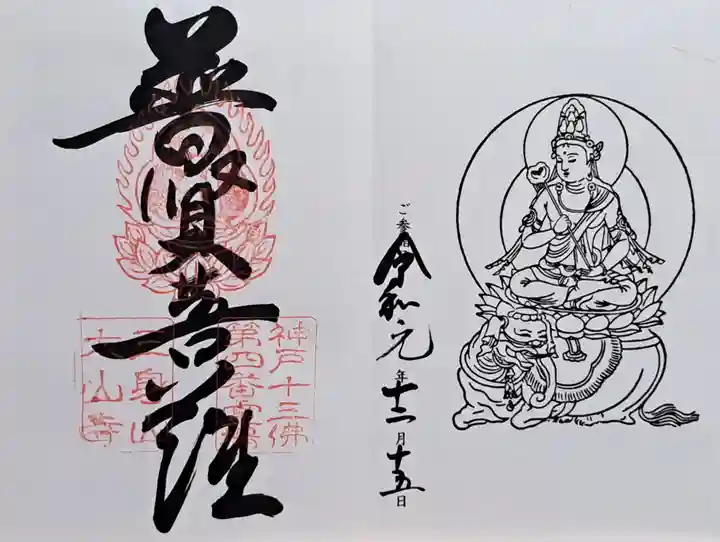 ご参拝 令和元年十二月十五日
普賢菩薩
神戸十三佛
第四番霊場
三身山
太山寺